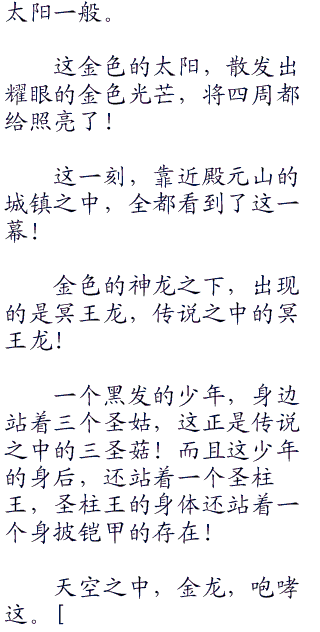 太阳一般。
这金色的太阳，散发出
耀眼的金色光芒，将四周都
给照亮了！
这一刻，靠近殿元山的
城镇之中，全都看到了这一
幕！
金色的神龙之下，出现
的是冥王龙，传说之中的冥
王龙！
一个黑发的少年，身边
站着三个圣姑，这正是传说
之中的三圣菇！而且这少年
的身后，还站着一个圣柱
王，圣柱王的身体还站着一
个身披铠甲的存在！
天空之中，金龙，咆哮
这。[